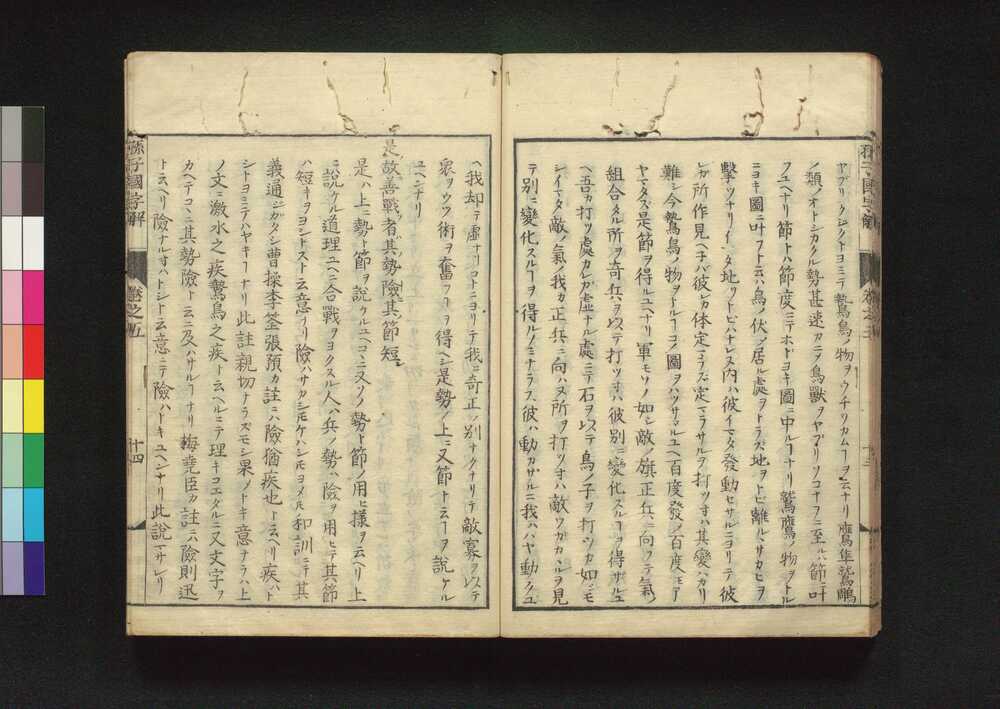 ヤブリクジクトヨミテ鷙鳥ノ物ヲウチツカムヿヲ云ナリ鷹隼鷲鵰
ノ類ノオトシカクル勢甚速カニテ鳥獸ヲヤブリソコナフニ至ルハ節ニ叶
フユヘナリ節トハ節度ニテホドヨキ圖ニ中ルヿナリ鷲鷹ノ物ヲトル
ニヨキ圖ニ叶フト云ハ鳥ノ伏シ居ル處ヲトラズ地ヲトビ離ルヽサカヒヲ
擊ツナリイマダ地ヲトビハナレズ内ハ彼イマタ發動セサルニヨリテ彼
レガ所作見ヘチバ彼レカ体定マラズ定マラサルヲ打ツ寸ハ其變ハカリ
難シ今鷙鳥ノ物ヲトルヿコノ圖ヲハヅサヾルユヘ百度發ノ百度モア
ヤマタズ是節ヲ得ルユヘナリ軍モソノ如シ敵ノ旗正兵ニ向フテ氣ノ
組合タル所ヲ奇兵ヲ以テ打ツ寸ハ彼別ニ變化スルヿヲ得ザルユ
ヘ吾カ打ツ處カレガ虛ナル處ニテ石ヲ以テ鳥ノ子ヲ打ツカ如シモ
シイマタ敵ノ氣我カ正兵ニ向ハヌ所ヲ打ツ寸ハ敵ワガカヽルヲ見
テ別ニ變化スルヿヲ得ルノミナラズ彼ハ動カザルニ我ハハヤ動クユ
ヘ我却テ虛ナリコトニヨリテ我ニ奇正ノ別ナクナリテ敵寡ヲ以テ
衆ヲウツ術ヲ奮フヿヲ得ヘシ是勢ノ上ニ又節ト云ヿヲ說ケル
ユヘンナリ
是故善戰者其勢險其節短
是ハ上ニ勢ト節ヲ說ケルユヘコヽニ又ソノ勢ト節ノ用ヒ樣ヲ云ヘリ上
ニ說ケル道理ユヘニ合戰ヲヨクスル人ハ兵ノ勢ハ險ヲ用ヒテ其節
ハ短キヲヨシトスト云意ナリ險ハサカシモケハシモヨメ𪜈和訓ニテ其
義通ジガタシ曹操李筌張預カ註ニハ險猶疾也ト云ヘリ疾ハト
シトヨミテハヤキヿナリ此註親切ナラズモシ果ノトキ意ナラハ上
ノ文ニ激水之疾鷙鳥之疾ト云ヘルニテ理キコエタルニ又文字ヲ
カヘテコヽニ其勢險ト云ニ及ハサルヿナリ梅堯臣カ註ニハ險則迅
ト云ヘリ險ナル寸ハトシト云意ニテ險ハトキユヘンナリ此說マサレリ
孫子國字解
卷之五
十四